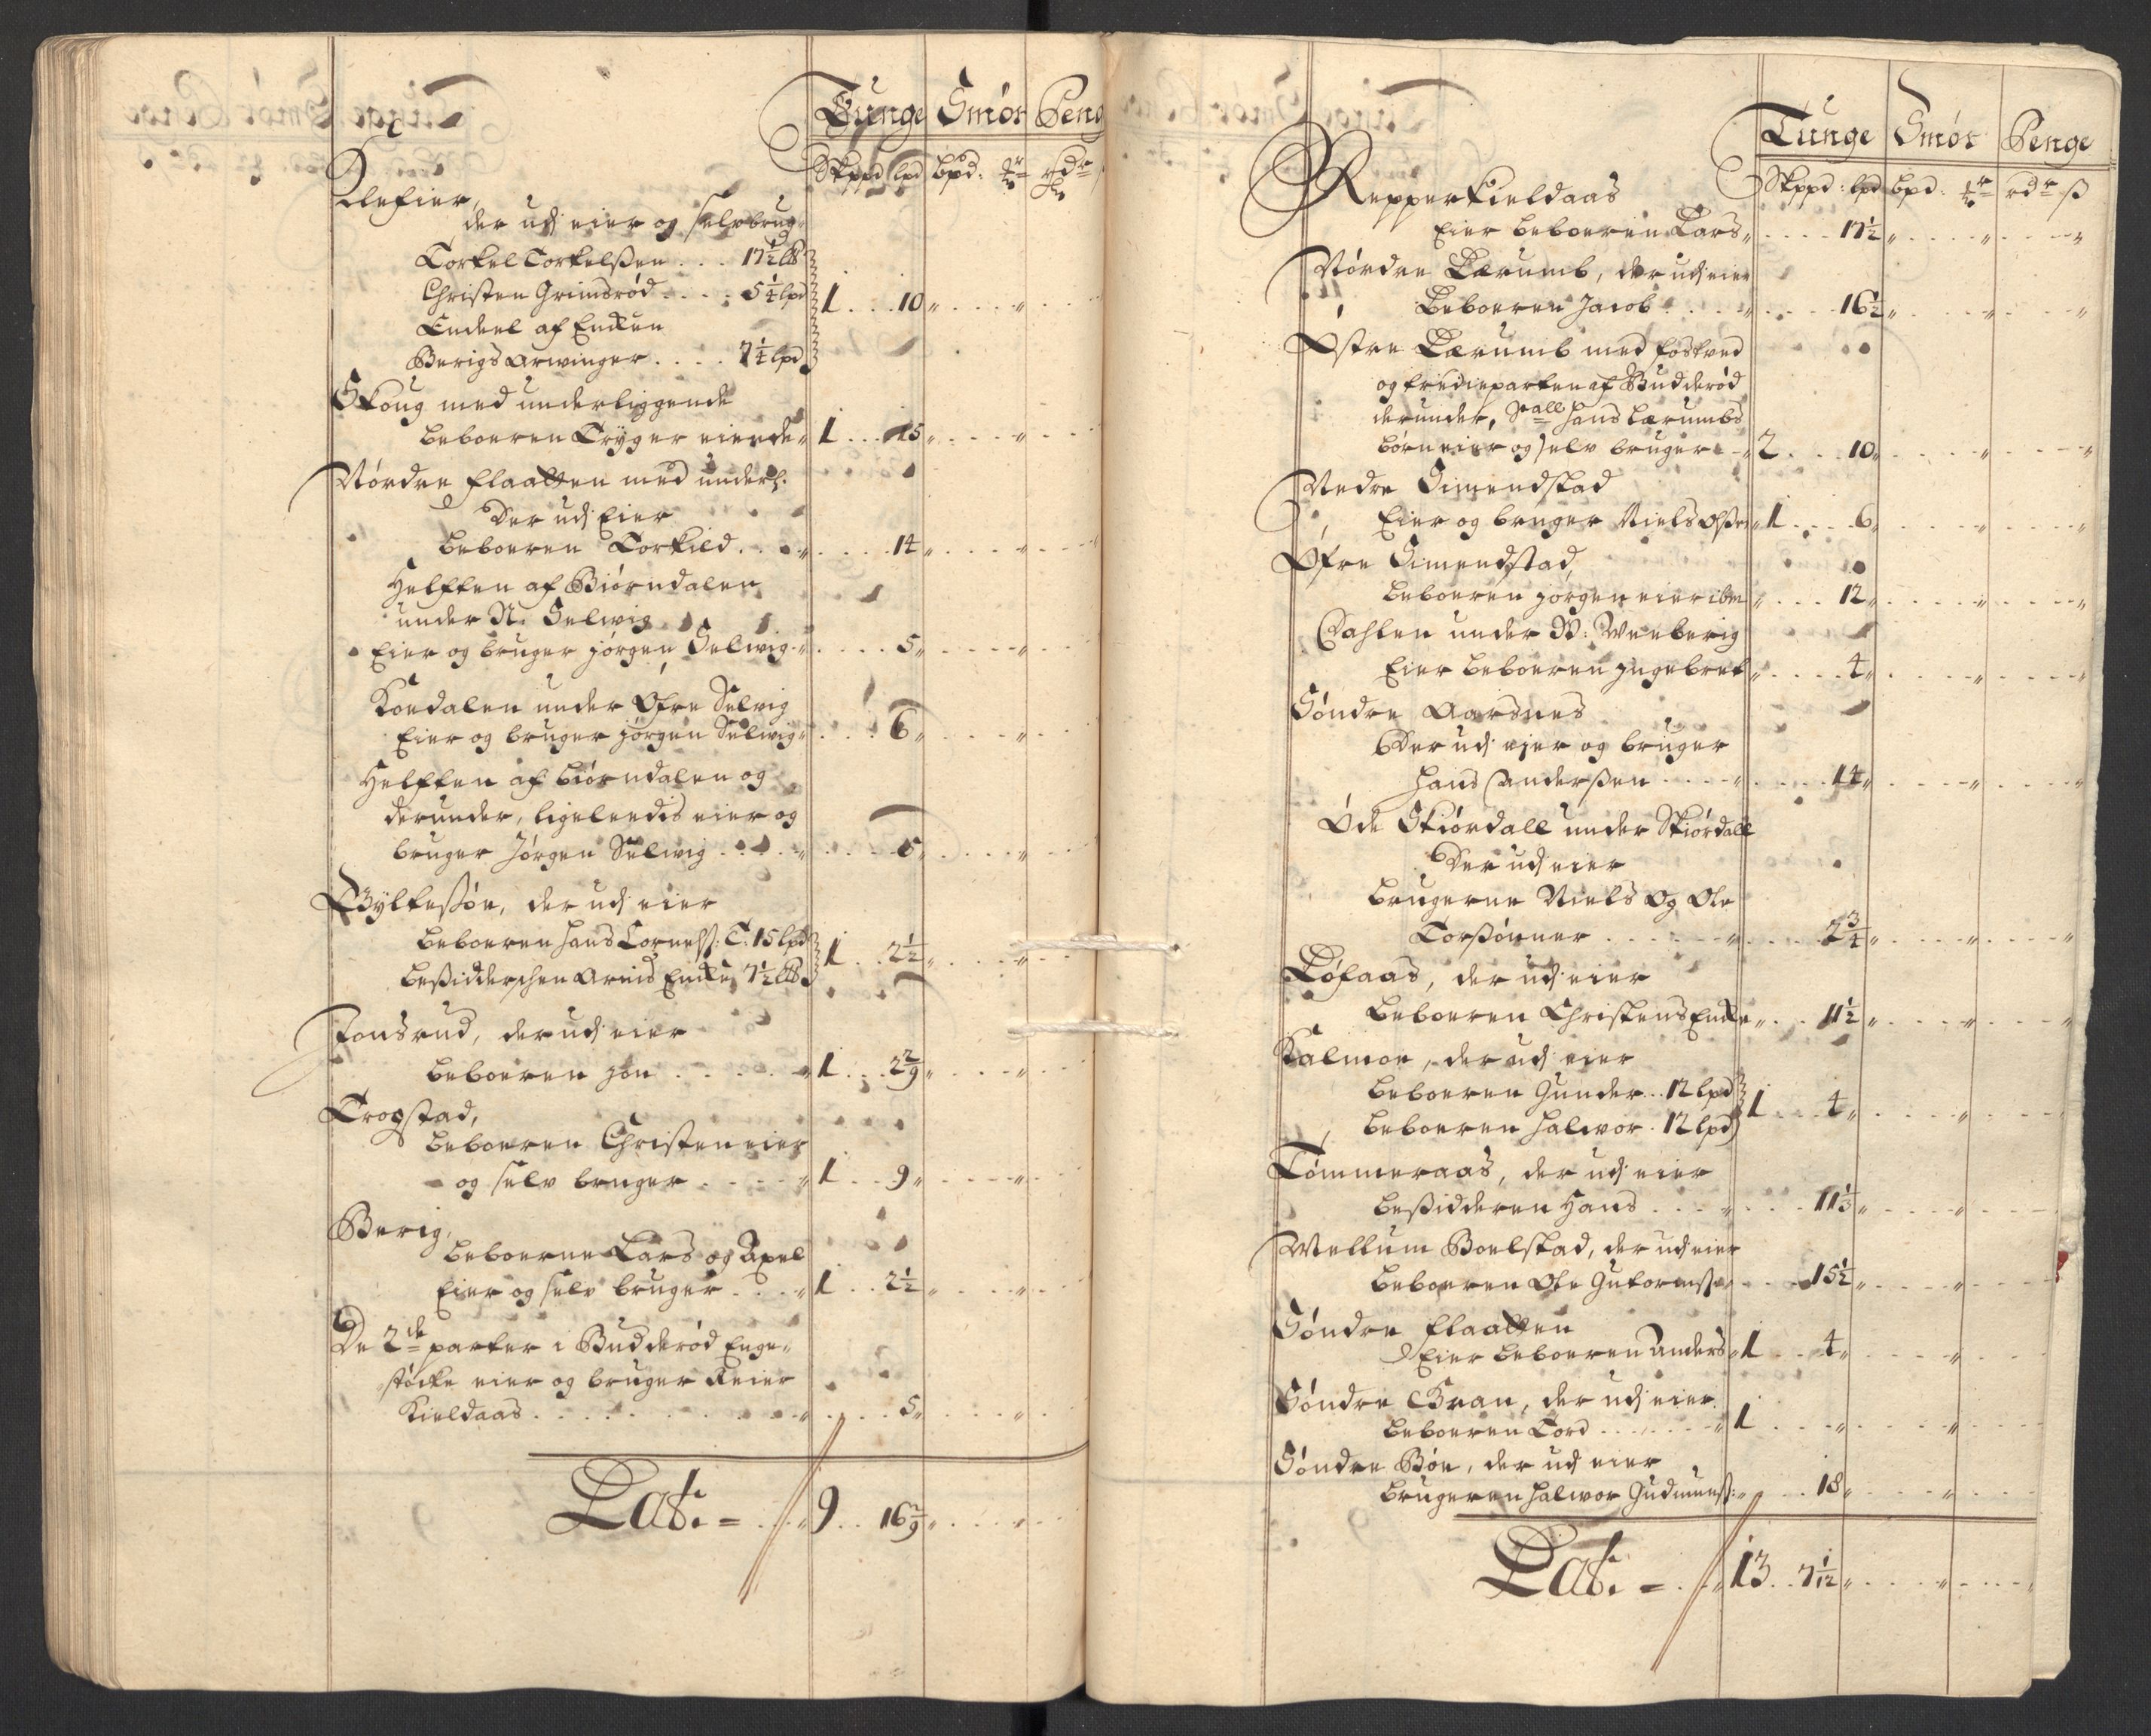 Tunge Smór Peng
Skppd lpd bpd: rdr
Klefier,
der udj eier og selv brug
Torkel Torkelßen . . . 17½ lb
Christen Grimsród . . . 5¼ lpd 1 . . . 10
Endeel af Enken
Berigs Arwinger . . . . 7¼ lpd
Skoug med underliggende
beboeren Tryger eiende 1 . . . 15
Nórdre Flaatten med underl:
Der udj Eier
beboeren Torkild . . . . 14
Helften af Biórndalen
under N. Selwig
Eier og bruger jórgen Selwig . . . . 5
Koedalen under Øfre Selvig
Eier og bruger jórgen Selwig . . . . 6
Helften af biórndalen og
derunder, ligeledis eier og
bruger Jórgen Selwig . . . . 5
Bylteßóe, der udj eier
beboeren Hans Cornelß: T: 15 lpd 1 . . 2½
beßidderschen Arnis Enke 7½ lb
Jonsrud, der udj eier
beboeren jon . . . . . 1 . . . 2 2/9
Trogstad,
beboeren Christen eier
og selv bruger . . . . 1 . . 9
Berig,
beboerne Lars og Axel
Eier og selv bruger . . . 1 . . 2½
De 2de parter i Budderód Enge-
stócke eier og bruger Reier
Kieldaas . . . . . . . . 5
Lat. = . . . 9 . . 16 2/9
Tunge Smór Penge
Skppd: lpd bpd: rdr ß
Repperkieldaas
Eier beboeren Lars . . . . 17½
Nórdre Lærumb, der udj eier
beboeren Jacob . . . . 16½
Østre Lærumb med foskved
og tredieparten af Budderód
derunder, Sall Hans Lærumbs
bórn eier og selv bruger 2 . . . 10
Nedre Simendstad
Eier og bruger Niels Olßen 1 . . . 6
Øfre Simendstad,
beboeren jórgen eier ibm . . . 12
Dahlen under W: Wreberig
Eier beboeren jngebret . . . . 4
Sóndre Aarsnes
Der udj ejer og bruger
Hans Anderßen . . . . 14
Øde Skiórdall under Skiórdall
Der udj eier
brugerne Niels Og Ole
Torßónner . . . . . 2¾
Lófaas, der udj eier
beboeren Christens Enke . . . 11½
Kalmoe, der udj eier
beboeren Gunder . . 12 lpd
beboeren Halwor . 12 lpd 1 . . . 4
Tómmeraas, der udj eier
beßidderen Hans . . . . 11⅓
Mellum Boelstad, der udj eier
beboeren Ole Gutormß . . . 15½
Sóndre Flaatten
Eier beboeren Anders 1 . . 4
Sóndre Gran, der udj eier
beboeren Tord . . . . . . 1
Sóndre Bóe, der udj eier
brugeren Halwor Gudmunß: . . . 18
Lat. = . . 13 . . 7 1/12